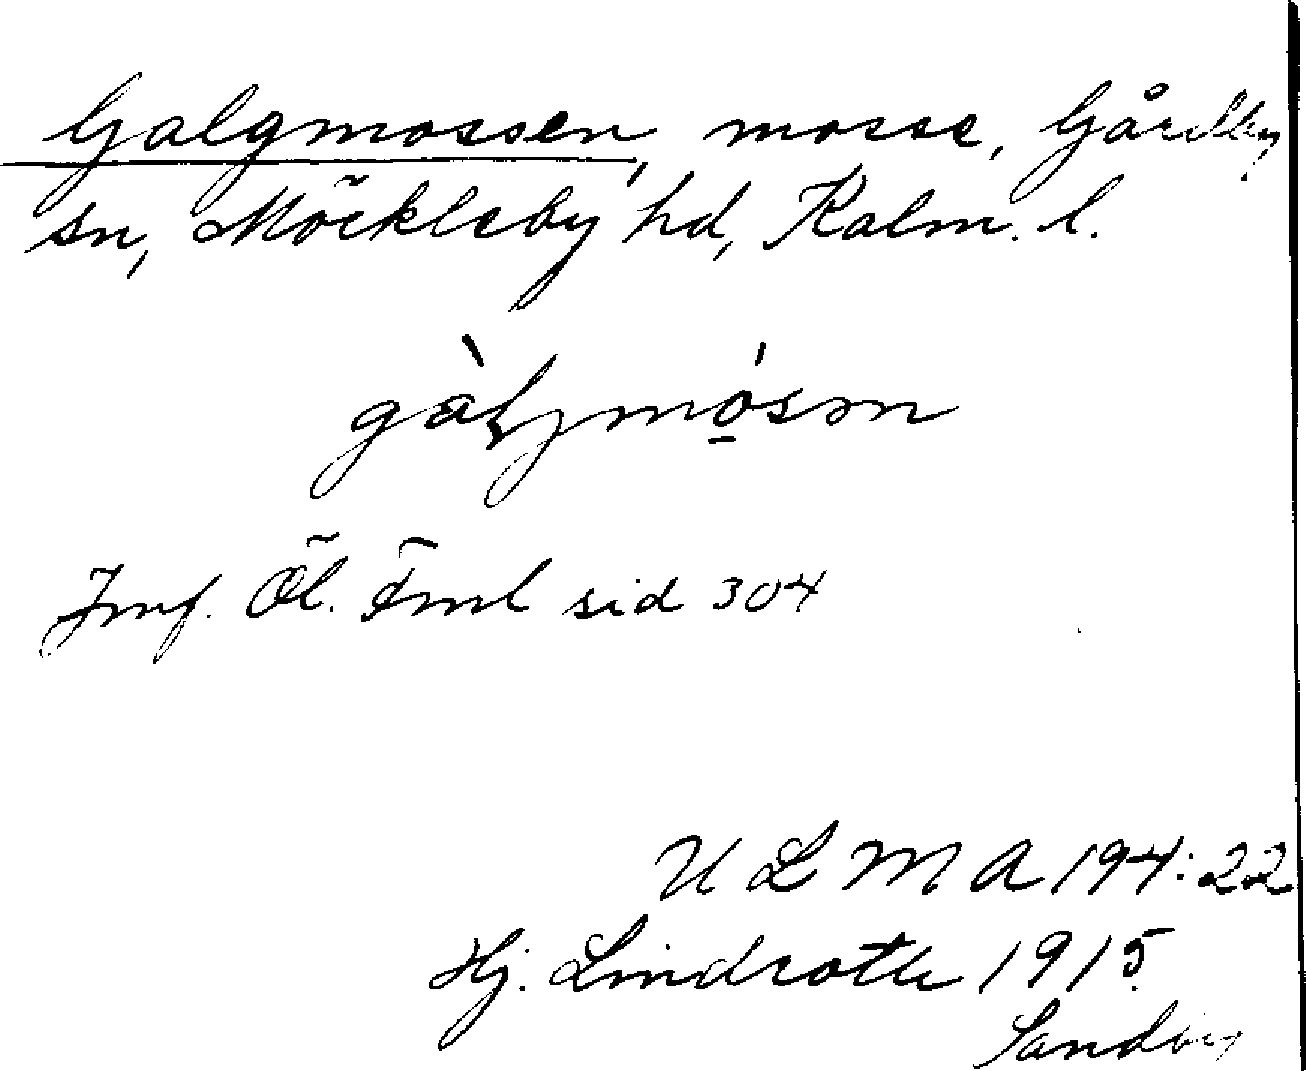 Galgmossen, mosse, Gårdby
sn, Möckleby hd, Kalm. l.
gàljmo̠sən
Jmf. Öl. Fml sid 304
U L M A 194:22
Hj. Lindroth 1915.
Sandby